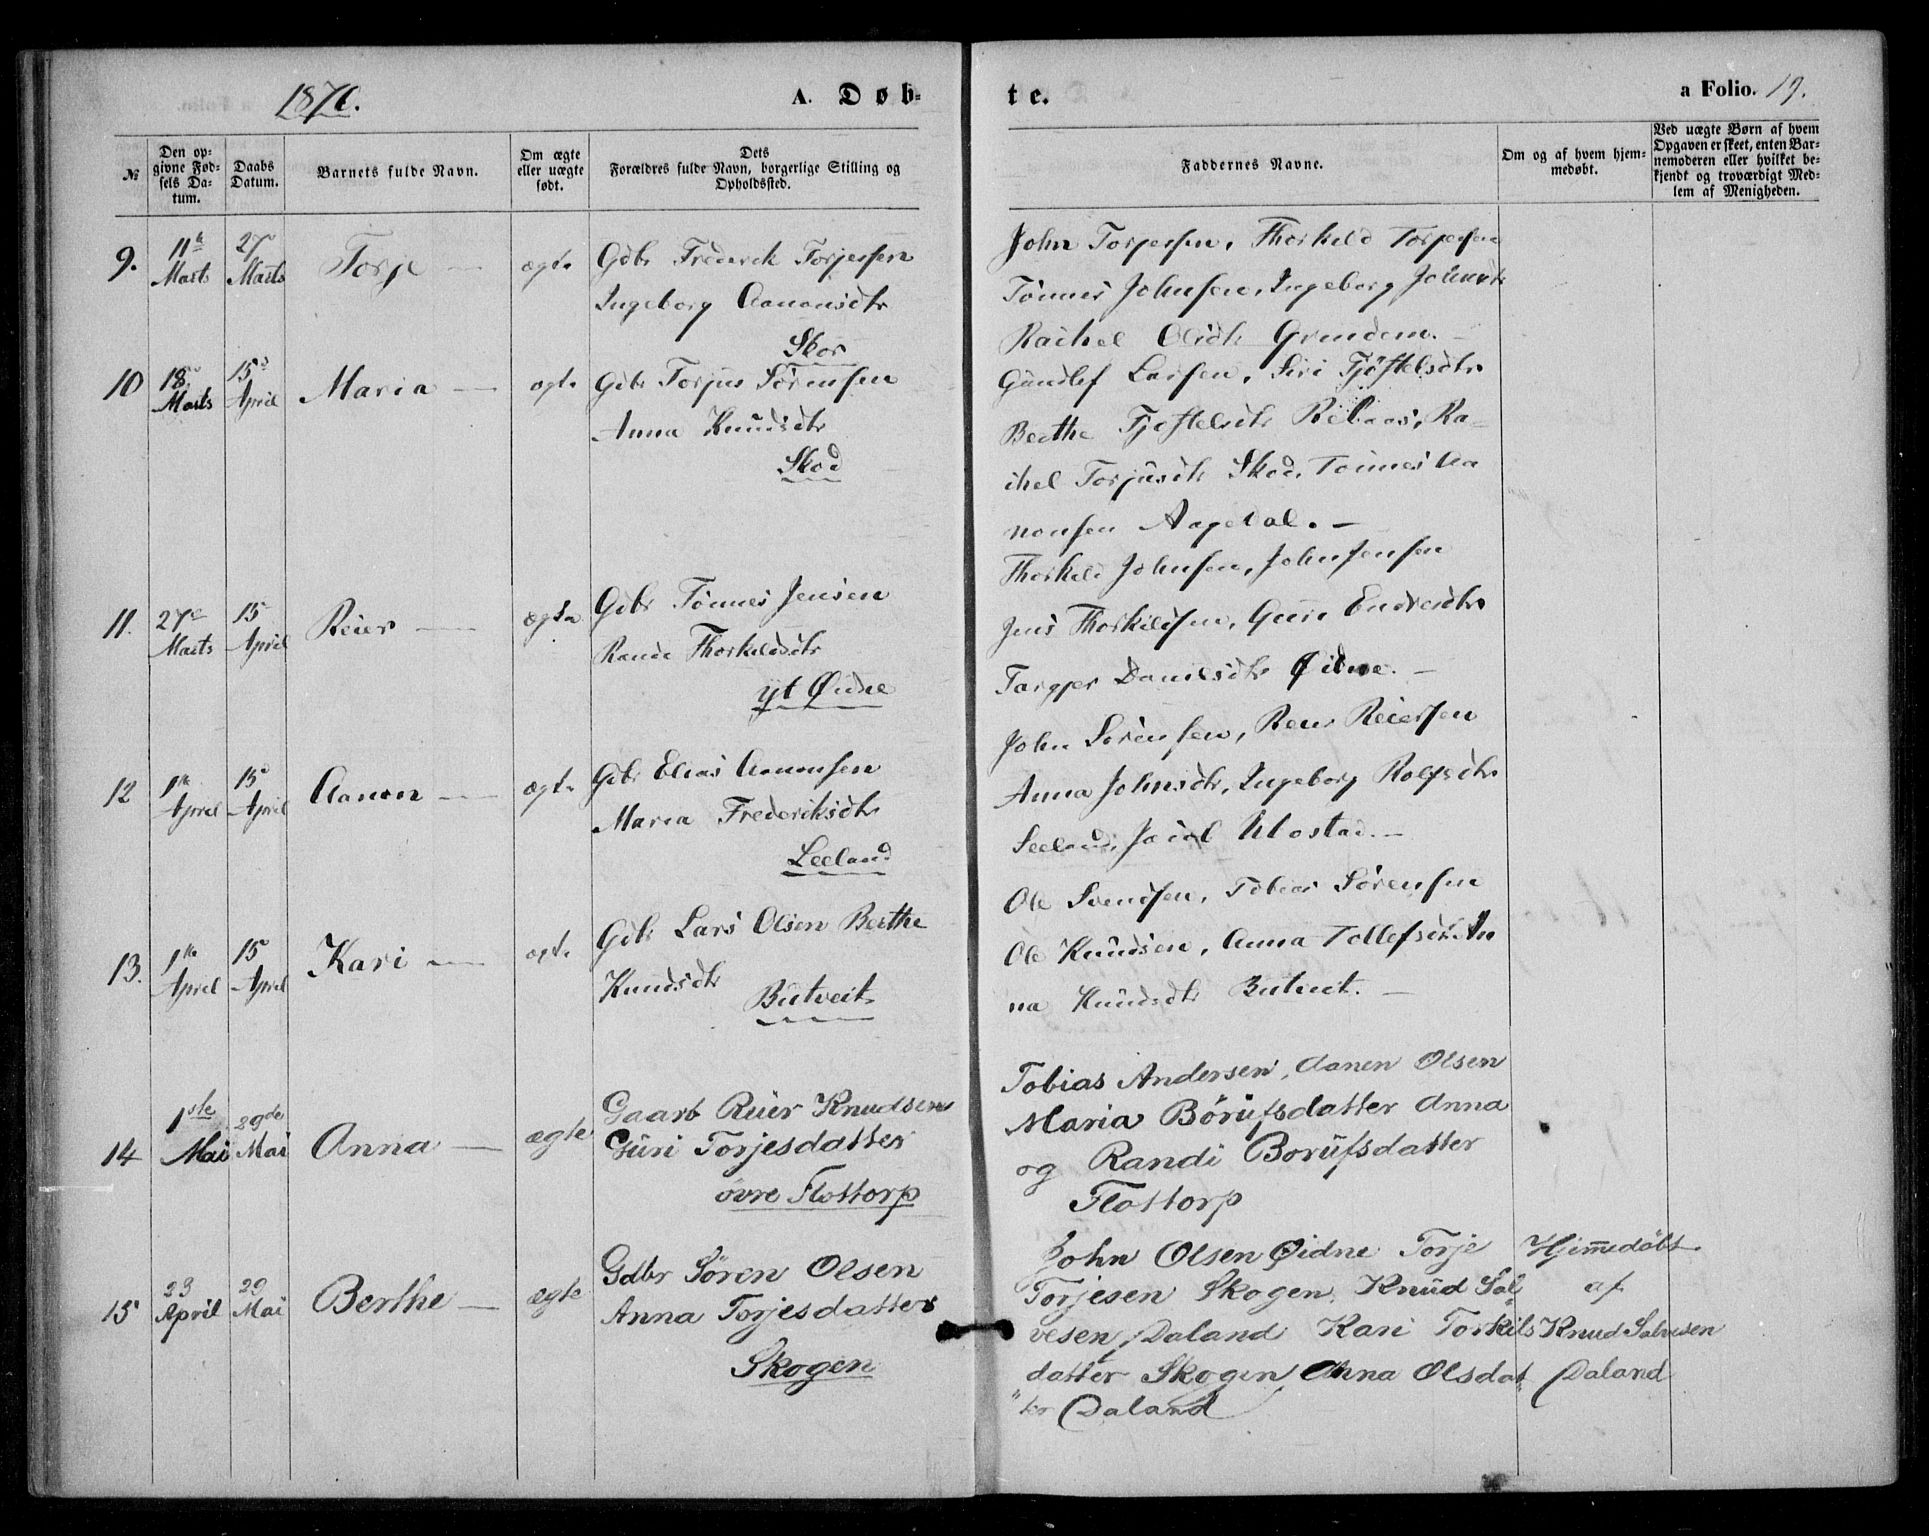 1870.
A. Døb-
te.
a Folio. 19.
№
Den op-
givne Fød-
sels Da-
tum.
Daabs
Datum.
Barnets fulde Navn.
Om ægte
eller uægte
født.
Dets
Forældres fulde Navn, borgerlige Stilling og
Opholdssted.
Faddernes Navne.
Om og af hvem hjem-
medøbt.
Ved uægte Børn af hvem
Opgaven er skeet, enten Bar-
nemoderen eller hvilket be-
kjendt og troværdigt Med-
lem af Menigheden.
9.
11te
Marts
27
Marts
Torje
ægte
Gdbr Frederik Torjessen
Ingeborg Aanonsdtr
Skor
John Torjessen, Thorkild Torjesen
Tönnes Johnsen, Ingeborg Johnsdtr
Rachel Olsdtr Grundem.
10
18
Marts
15d
April
Maria
ægte
Gdbr Torjus Sörensen
Anna Knudsdtr
Skod
Gundlef Larsen, Siri Tjöstelsdtr
Berthe Tjöstelsdtr Ribaas, Ra-
chel Torjusdtr Skod, Tönnes Aa
nonsen Aagedal.
11.
27e
Marts
15
April
Reier
ægte
Gdbr Tönnes Jensen
Rande Thorkildsdtr
yt Øidne
Thorkild Johnsen, John Jensen
Jens Thorkildsen, Guri Endresdtr
Targjer Danielsdtr Øidne.
12
1te
April
15d
April
Aanon
ægte
Gdbr Elias Aanonsen
Maria Frederiksdtr
Leeland
John Sörensen, Reier Reiersen
Anna Johnsdtr, Ingeborg Rolfsdtr
Leeland, Jacob Mostad.
13.
1te
April
15
April
Kari
ægte
Gdbr Lars Olsen Berthe
Knudsdtr
Butveit
Ole Svendsen, Tobias Sörensen
Ole Knudsen, Anna Tollefsdtr An
na Knudsdtr Butveit.
14
1ste
Mai
29de
Mai
Anna
ægte
Gaarb Reier Knudsen
Guri Torjesdatter
övre Flottorp
Tobias Andersen, Aanen Olsen
Maria Börufsdatter Anna
og Randi Borufsdatter
Flottorp
15
23
April
29
Mai
Berthe
ægte
Gdbr Sören Olsen
Anna Torjesdatter
Skogen
John Olsen Øidne Torje
Torjesen Skogen, Knud Sal
vesen Daland Kari Torkils
datter Skogen Anna Olsdat
ter Daland
Hjemmedöbt
af
Knud Salvesen
Daland